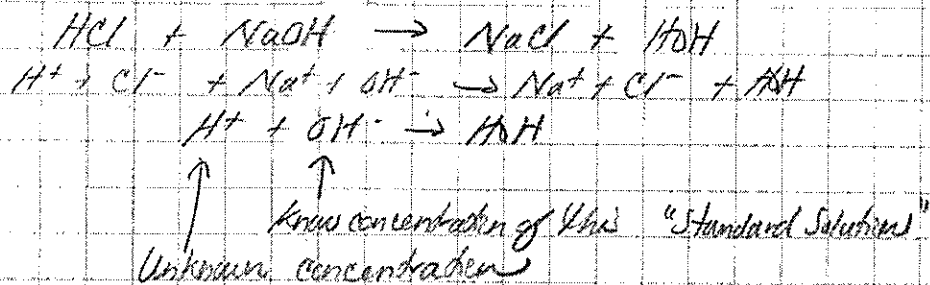 HCl + NaOH → NaCl + HOH
H⁺ + Cl⁻ + Na⁺ + OH⁻ → Na⁺ + Cl⁻ + HOH
H⁺ + OH⁻ → HOH
Know concentration of this "Standard Solution"
Unknown concentration